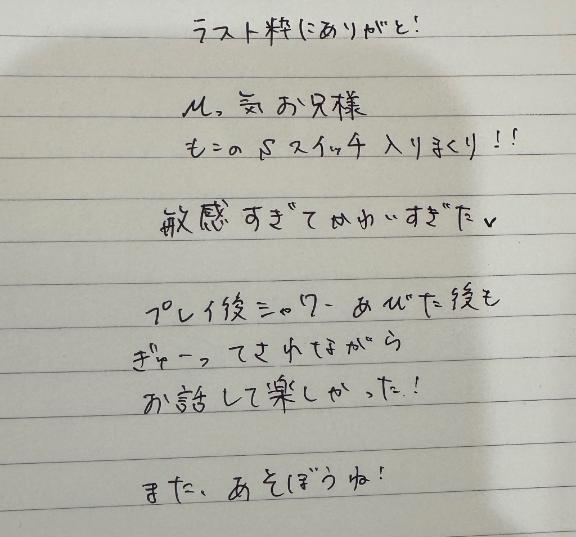 ラスト枠にありがと!
M、気お兄様
ものSスイッチ入りまくり!!
敏感すぎてかわいすぎた
プレイ後シャワーあびた後も
ぎゅーってされながら
お話しして楽しかった!
また、あそぼうね!